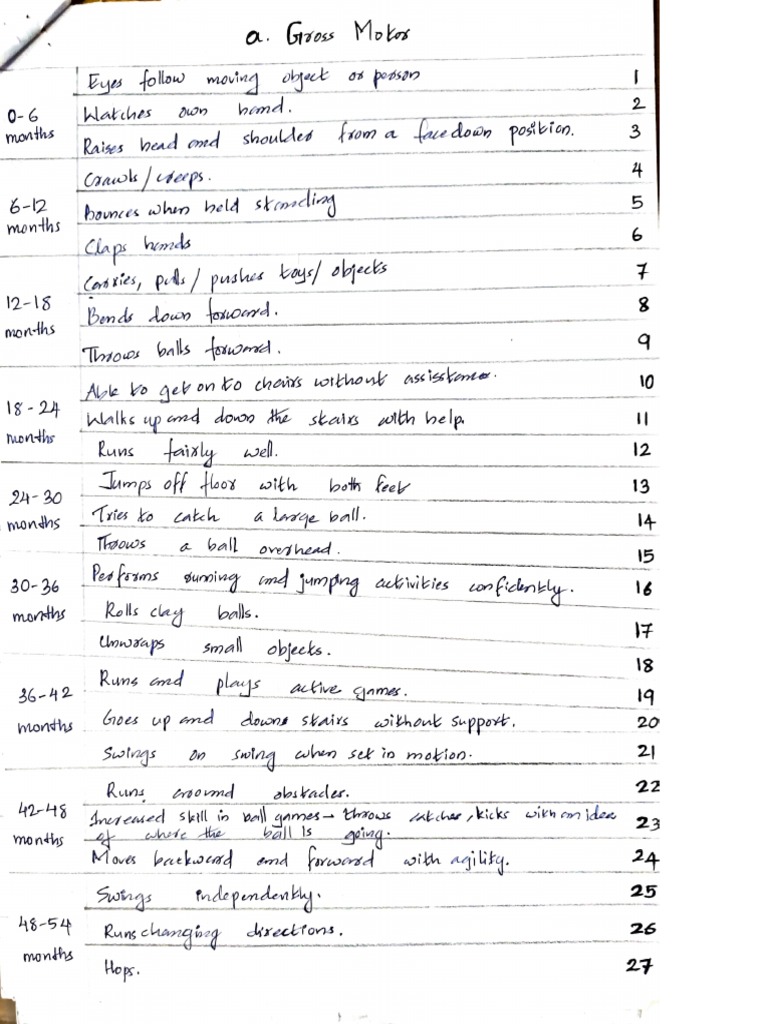 a. Gross Motor
0-6 months
Eyes follow moving object or person 1
Watches own hand. 2
Raises head and shoulder from a face down position. 3
6-12 months
Crawls/creeps. 4
Bounces when held standing 5
Claps hands 6
12-18 months
Carries, pulls/pushes toys/objects 7
Bends down forward. 8
Throws balls forward. 9
18-24 months
Able to get on to chairs without assisstance. 10
Walks up and down the stairs with help. 11
Runs fairly well. 12
24-30 months
Jumps off floor with both feet 13
Tries to catch a large ball. 14
Throws a ball overhead. 15
30-36 months
Performs running and jumping activities confidently. 16
Rolls clay balls. 17
Unwraps small objects. 18
36-42 months
Runs and plays active games. 19
Goes up and down stairs without support. 20
Swings on swing when set in motion. 21
42-48 months
Runs around obstacles. 22
Increased skill in ball games - throws catches, kicks with an idea
of where the ball is going. 23
Moves backward and forward with agility. 24
48-54 months
Swings independently. 25
Runs changing directions. 26
Hops. 27